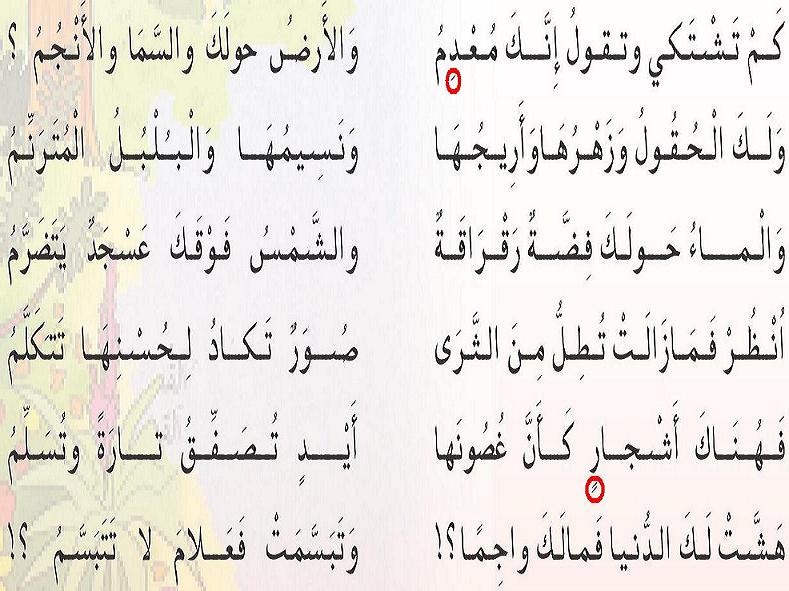 كَمْ تَشْتَكي وتقولُ إِنَّكَ مُعْدِمُ وَالأَرضُ حولَكَ والسَّمَا والأَنْجُمُ ؟
وَلَكَ الْحُقُولُ وَزَهْرُهَا وَأَرِيجُهَا وَنَسِيمُهَا وَالْبُلْبُلُ الْمُتَرَنِّمُ
وَالْماءُ حَولَكَ فِضَّةٌ رَقْرَاقَةٌ والشَّمْسُ فَوْقَكَ عَسْجَدٌ يَتَضَرَّمُ
اُنْظُرْ فَمَازَالَتْ تُطِلُّ مِنَ الثَّرَى صُوَرٌ تَكادُ لِحُسْنِهَا تَتَكَلَّمُ
فَهُنَاكَ أَشْجارٍ كَأَنَّ غُصُونَها أَيْدٍ تُصَفِّقُ تارَةً وتُسَلِّمُ
هَشَّتْ لَكَ الدُّنيا فَمالَكَ واجِمًا؟! وَتَبَسَّمَتْ فَعَلامَ لا تَتَبَسَّمُ ؟!